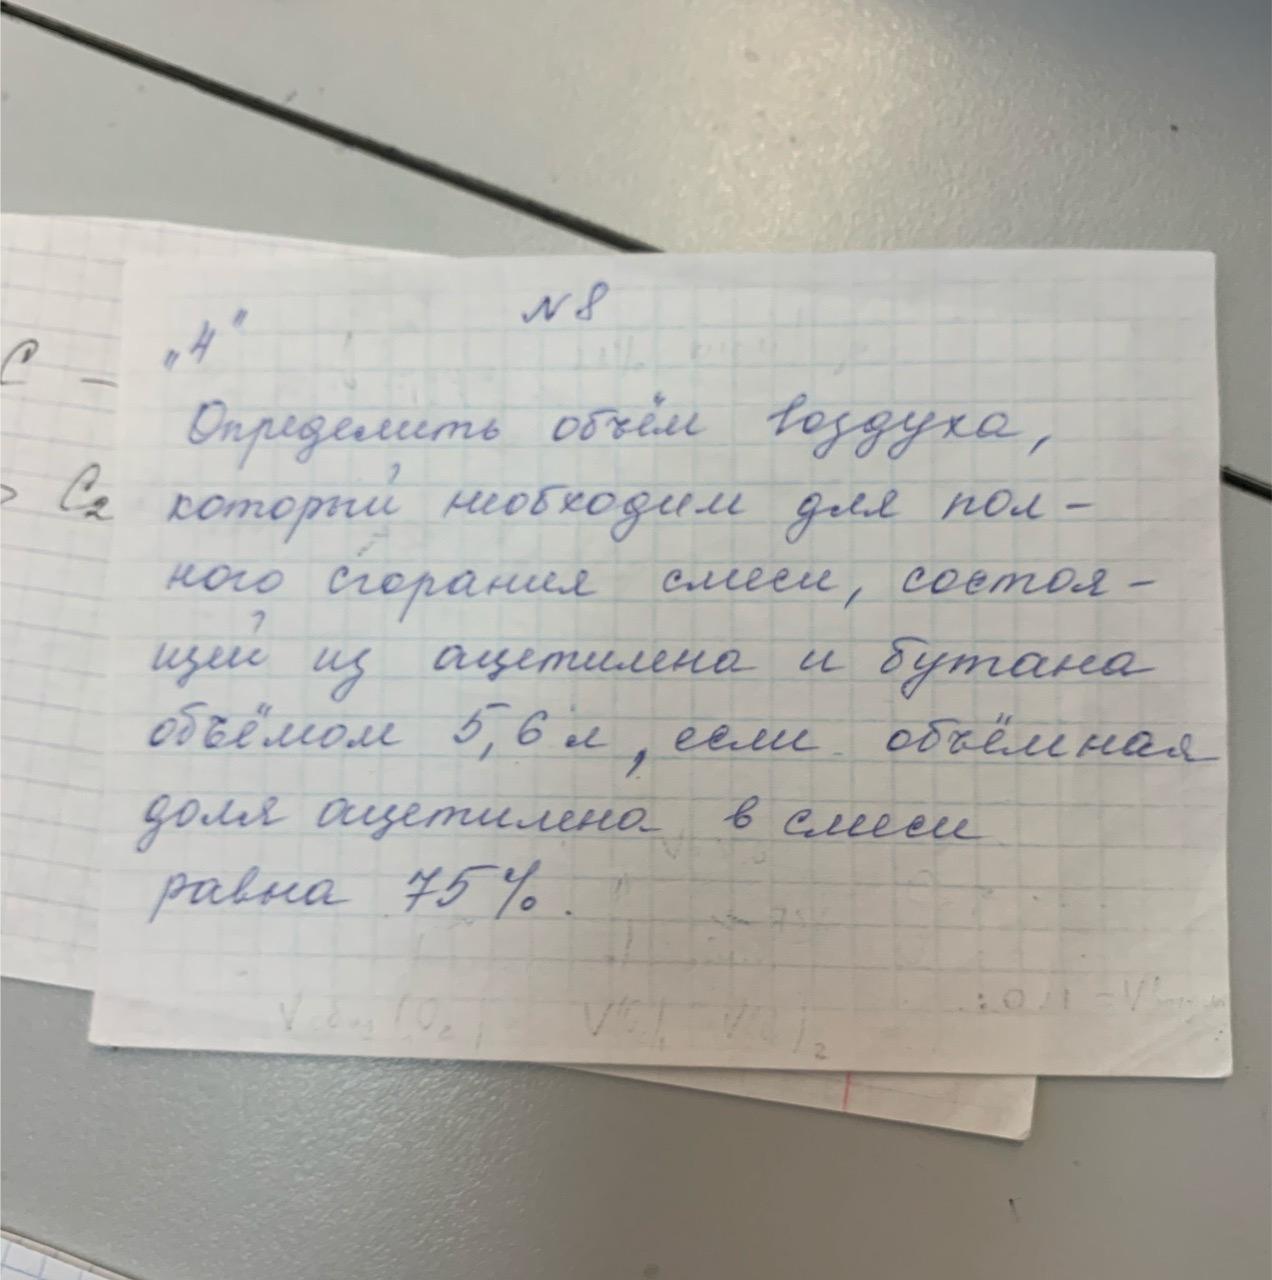 N 8
„4"
Определить объём воздуха,
который необходим для пол-
ного сгорания смеси, состоя-
щей из ацетилена и бутана
объёмом 5,6 л, если объёмная
доля ацетилена в смеси
равна 75%.
C –
> C₂